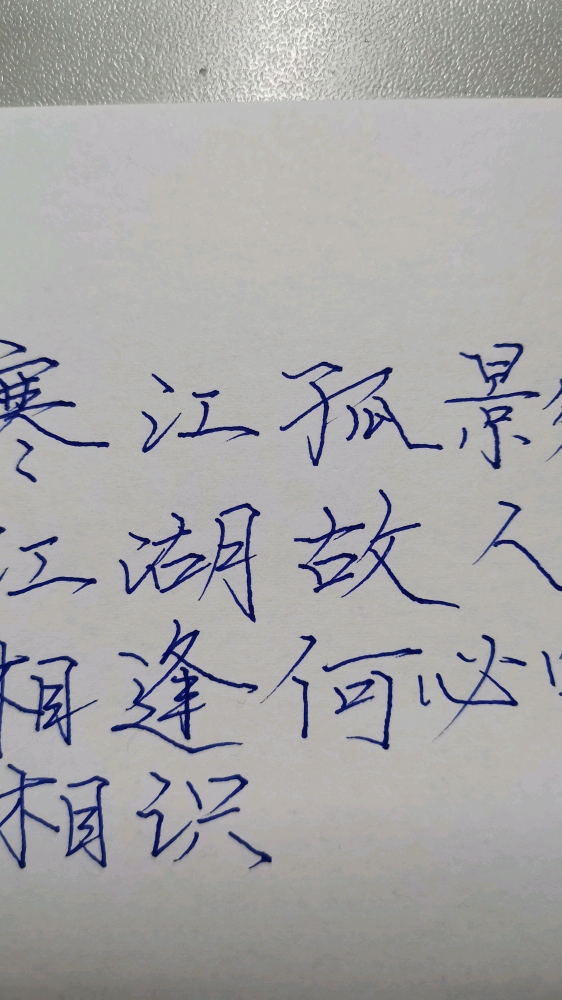 寒江孤景
江湖故人
相逢何必
相识